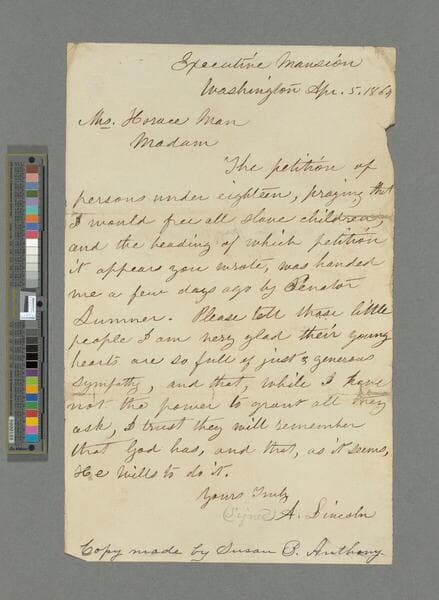 Executive Mansion
Washington Apr. 5. 1864
Mrs. Horace Man
Madam
The petition of
persons under eighteen, praying that
I would free all slave children,
and the heading of which petition
it appears you wrote, was handed
me a few days ago by Senator
Sumner. Please tell those little
people I am very glad their young
hearts are so full of just & generous
sympathy, and that, while I have
not the power to grant all they
ask, I trust they will remember
that God has, and that, as it seems,
He Wills to do it.
Yours Truly
(Signed) A. Lincoln
Copy made by Susan B. Anthony.